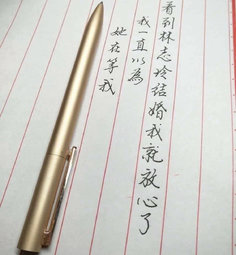 看到林志玲结婚我就放心了
我一直以為
她在等我